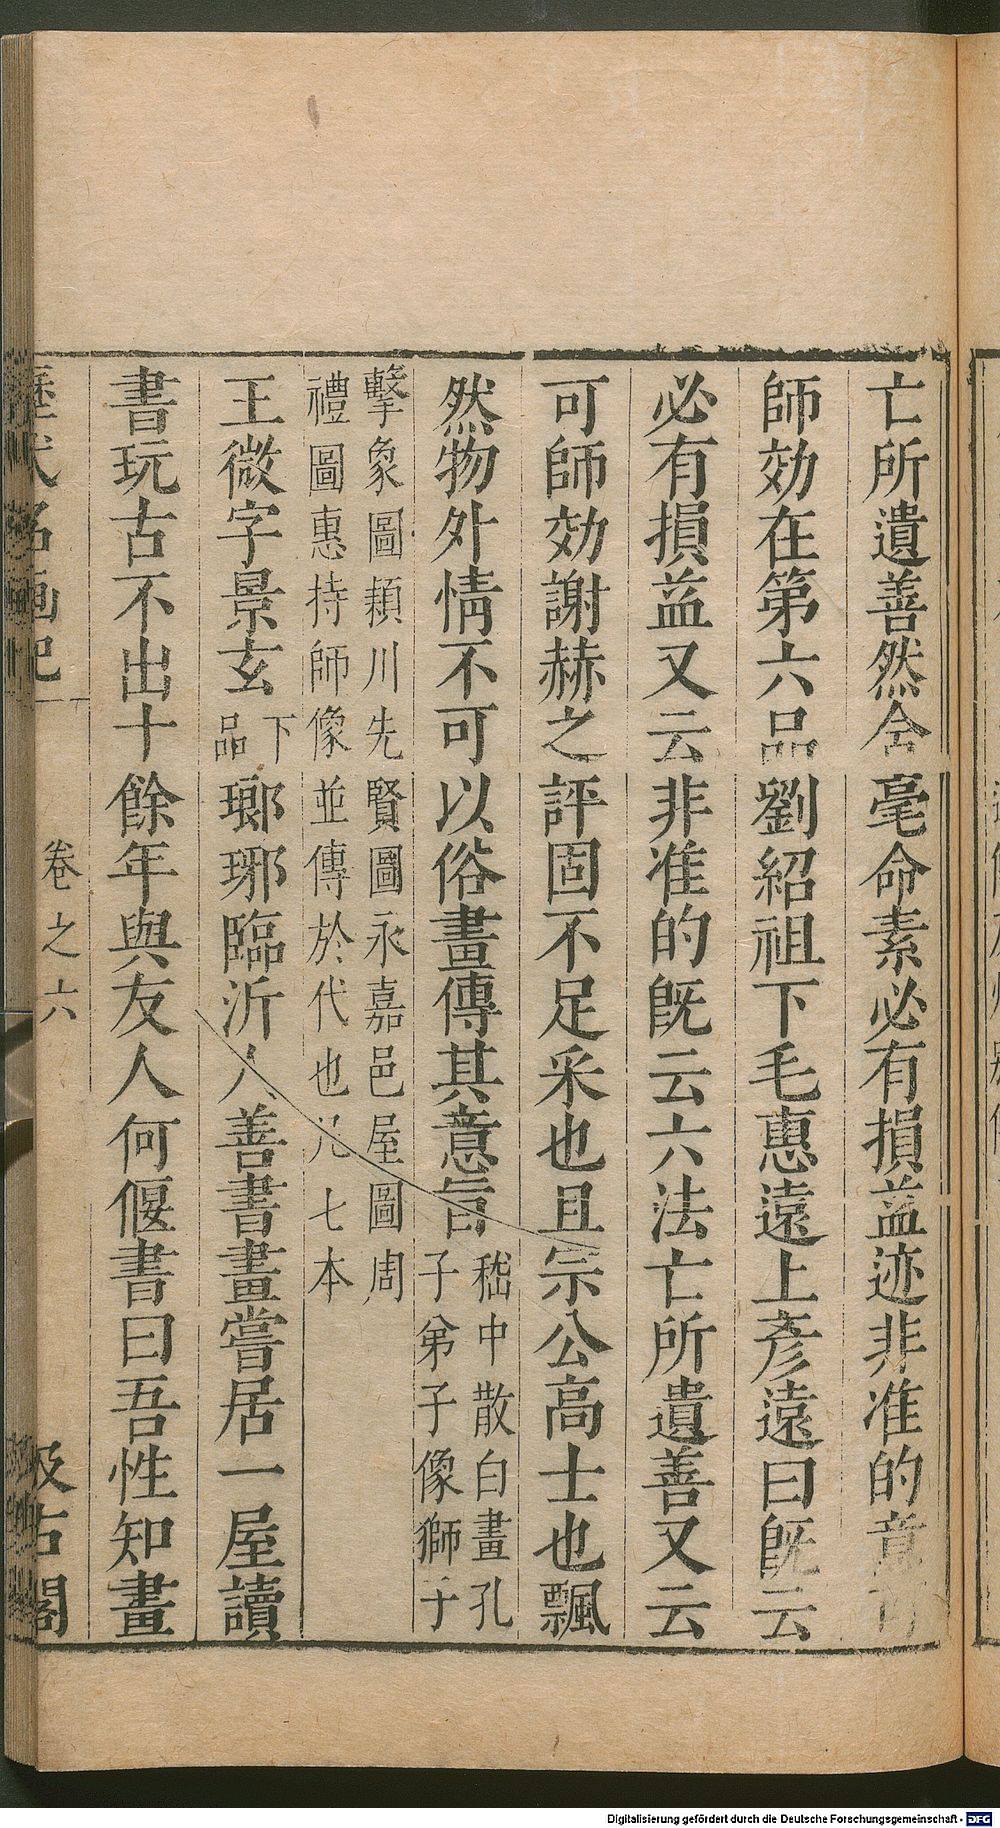 亡所遺善然含毫命素必有損益迹非准的意可
師効在第六品劉紹祖下毛惠遠上彥遠曰旣云
必有損益又云非准的旣云六法亡所遺善又云
可師効謝赫之評固不足采也且宗公高士也飄
然物外情不可以俗畫傳其意旨
嵇中散白畫孔
子弟子像獅子
擊象圖頴川先賢圖永嘉邑屋圖周
禮圖惠持師像並傳於代也凡七本
王微字景玄下品瑯琊臨沂人善書畫嘗居一屋讀
書玩古不出十餘年與友人何偃書曰吾性知畫
歷代名画記
卷之六
汲古閣
Digitalisierung gefördert durch die Deutsche Forschungsgemeinschaft - DFG